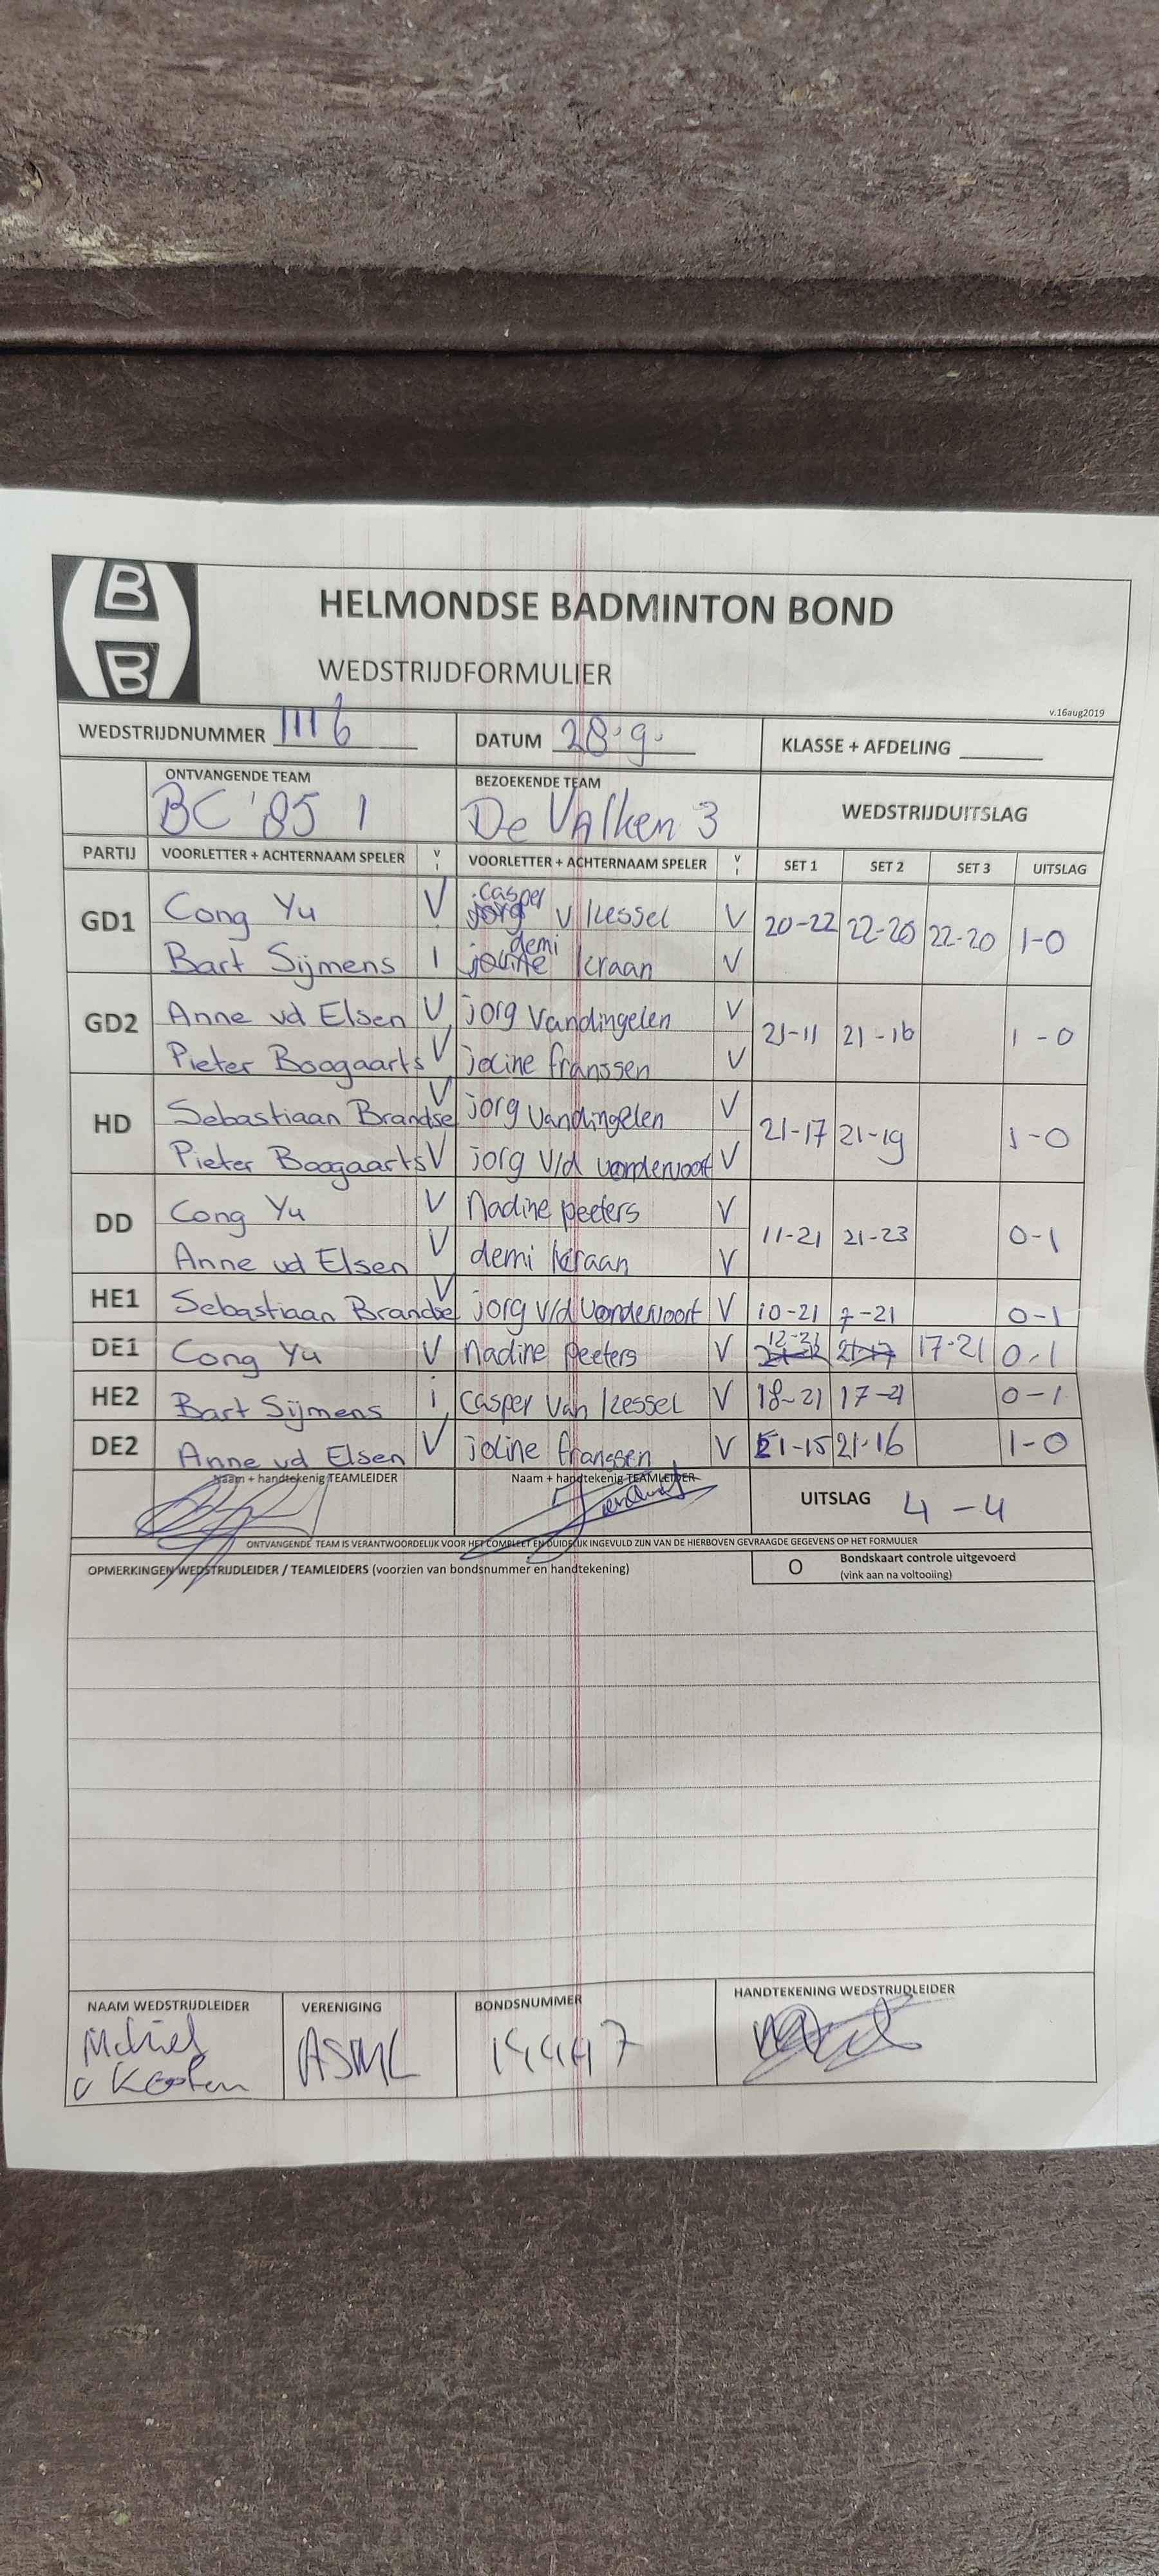 B
B
HELMONDSE BADMINTON BOND
WEDSTRIJDFORMULIER
v.16aug2019
WEDSTRIJDNUMMER 11116
DATUM 28.9.
KLASSE + AFDELING
ONTVANGENDE TEAM
BC '85 1
BEZOEKENDE TEAM
De Valken 3
WEDSTRIJDUITSLAG
PARTIJ VOORLETTER + ACHTERNAAM SPELER V I VOORLETTER + ACHTERNAAM SPELER V I SET 1 SET 2 SET 3 UITSLAG
GD1 Cong Yu V casper v kessel V 20-22 22-20 22-20 1-0
Bart Sijmens I demi kraan V
GD2 Anne vd Elsen V jorg vandingelen V 21-11 21-16 1-0
Pieter Boogaarts V joline franssen V
HD Sebastiaan Brandse V jorg vandingelen V 21-17 21-19 1-0
Pieter Boogaarts V jorg v/d vondervoort V
DD Cong Yu V nadine peeters V 11-21 21-23 0-1
Anne vd Elsen V demi kraan V
HE1 Sebastiaan Brandse V jorg v/d vondervoort V 10-21 7-21 0-1
DE1 Cong Yu V nadine peeters V 12-21 21-17 17-21 0-1
HE2 Bart Sijmens i casper van kessel V 18-21 17-21 0-1
DE2 Anne vd Elsen V joline franssen V 21-15 21-16 1-0
Naam + handtekenig TEAMLEIDER
Naam + handtekenig TEAMLEIDER
UITSLAG 4-4
ONTVANGENDE TEAM IS VERANTWOORDELIJK VOOR HET COMPLEET EN DUIDELIJK INGEVULD ZIJN VAN DE HIERBOVEN GEVRAAGDE GEGEVENS OP HET FORMULIER
OPMERKINGEN WEDSTRIJDLEIDER / TEAMLEIDERS (voorzien van bondsnummer en handtekening)
O Bondskaart controle uitgevoerd
(vink aan na voltooiing)
NAAM WEDSTRIJDLEIDER
VERENIGING
ASML
BONDSNUMMER
HANDTEKENING WEDSTRIJDLEIDER